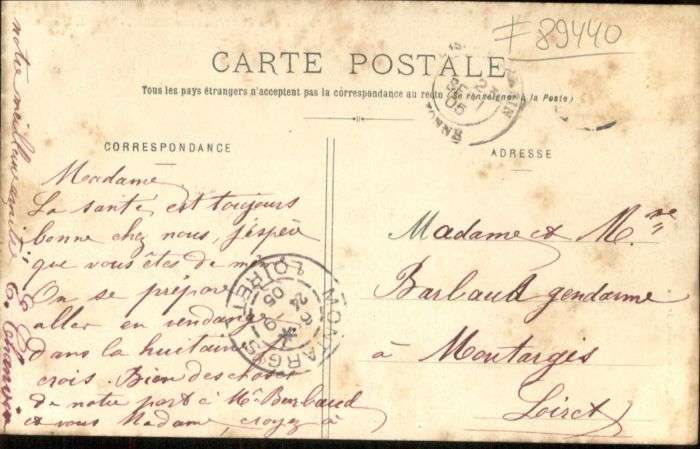 # 89440
CARTE POSTALE
Tous les pays étrangers n'acceptent pas la correspondance au recto (Se renseigner à la Poste)
CORRESPONDANCE
Madame
La santé est toujours
bonne chez nous, j'espère
que vous êtes de même
On se prépare
aller en vendange
dans la huitaine je
crois. Bien des choses
de notre part à Mr Barbaud
et vous Madame, croyez à
notre meilleure amitié
ADRESSE
Madame et M.
Barbaud gendarme
à Montargis
Loiret
MONTARGIS
LOIRET
24
05